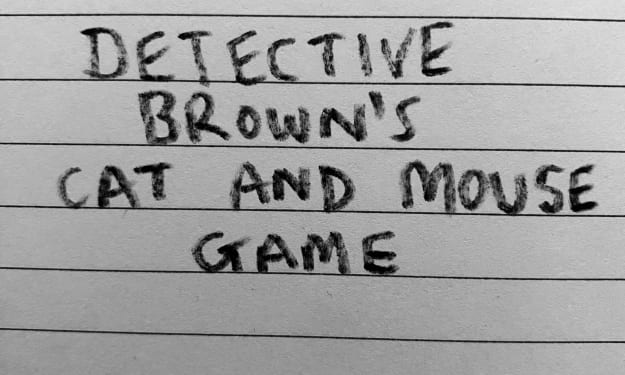 DETECTIVE
BROWN'S
CAT AND MOUSE
GAME